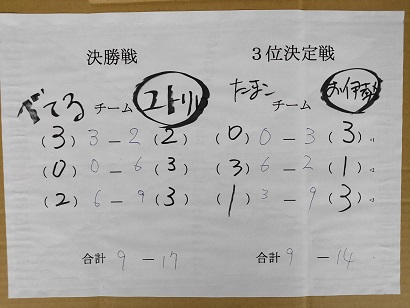 決勝戦 3位決定戦
べてる チーム ユトリル たまこ チーム お伊勢
(3) 3-2 (2) (0) 0-3 (3)
(0) 0-6 (3) (3) 6-2 (1)
(2) 6-9 (3) (1) 3-9 (3)
合計 9-17 合計 9-14